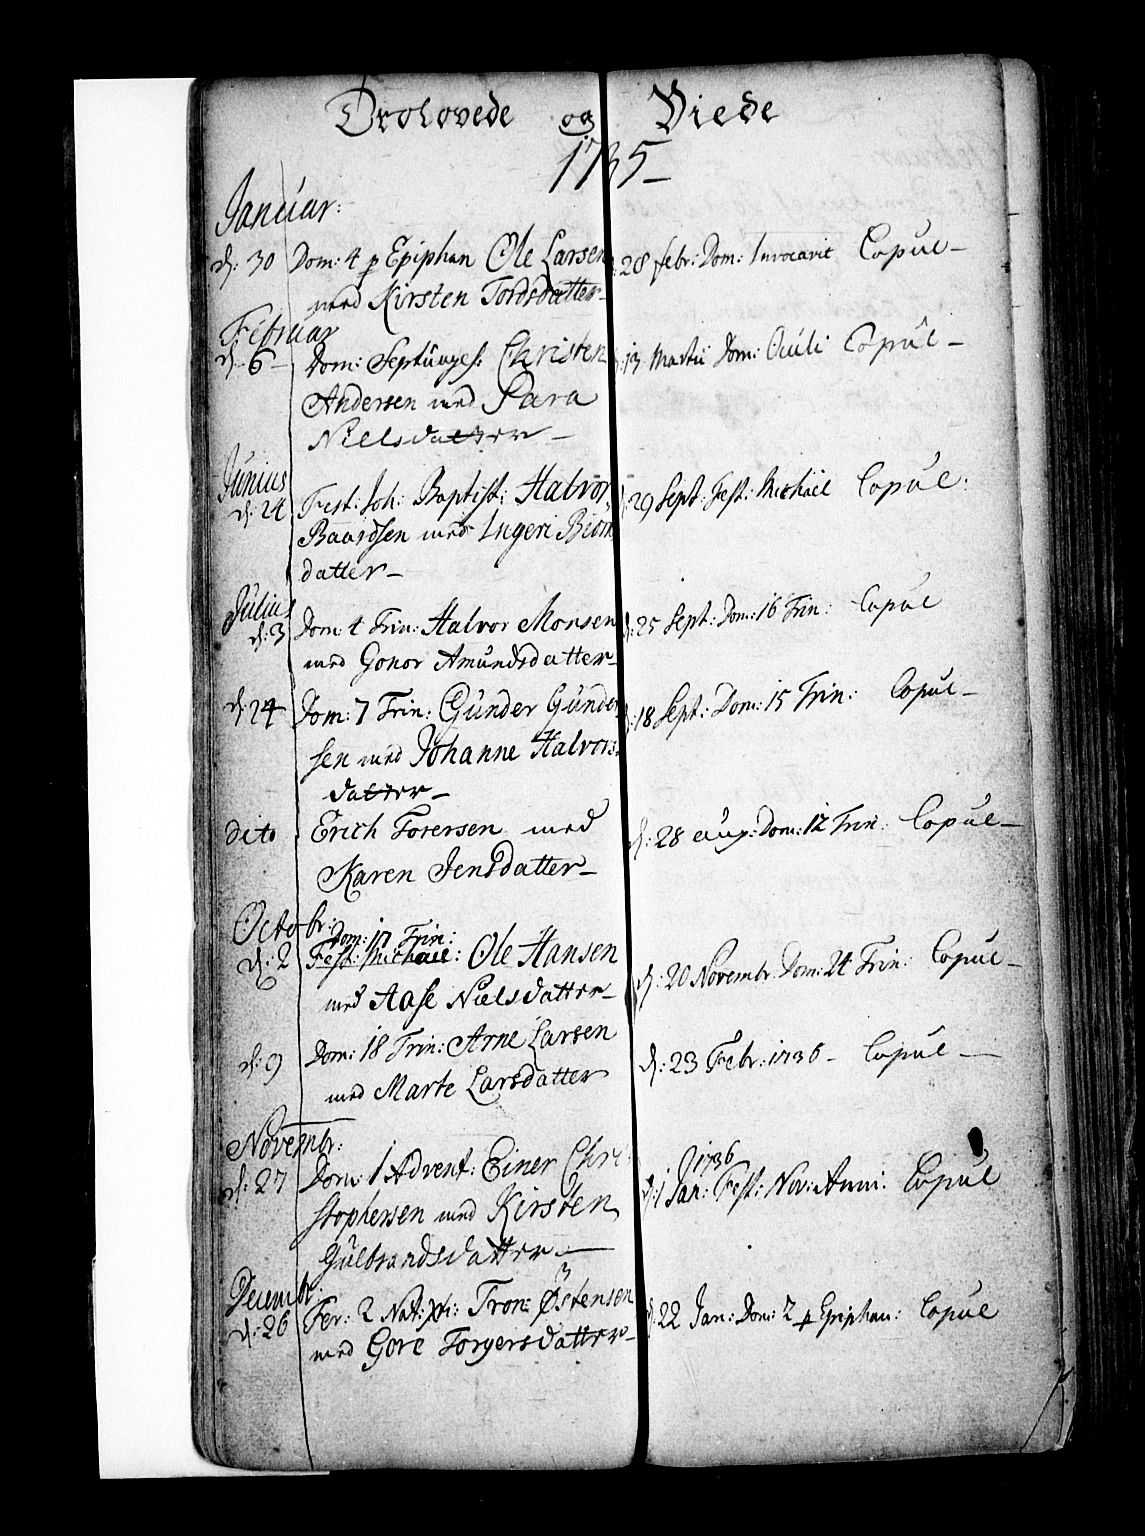 Trolovede og Viede
1735
Januar:
d: 30 Dom: 4 p Epiphan Ole Larsen d: 28 febr: Dom: Invocavit Copul
med Kirsten Tordsdatter
Februar
d. 6 Dom: Septuages: Christen d: 13 Martii Dom: Oculi Copul
Andersen med Sara
Nielsdatter
Junius
d: 24 Fest: Joh: Baptist: Halvor d: 29 Sept: Fest: Michael Copul.
Baardsen med Ingeri Biørn
datter
Julius
d: 3 Dom: 4 Trin: Halvor Monsen d: 25 Sept: Dom: 16 Trin: Copul
med Gonor Amundsdatter
d. 24 Dom: 7 Trin: Gunder Gunder d: 18 Sept: Dom: 15 Trin: Copul
sen med Johanne Halvors
datter
dito Erich Torersen med d: 28 aug: Dom: 12 Trin: Copul
Karen Jensdatter
Octobr:
Dom: 17 Trin:
d: 2 Fest: Michael: Ole Hansen d: 20 Novembr. Dom: 24 Trin: Copul
med Aase Nielsdatter
d: 9 Dom: 18 Trin: Arne Larsen d: 23 Febr: 1736 Copul
med Marte Larsdatter
Novembr:
1736
d: 27 Dom: 1 Advent: Einer Chri d: 1 Jan: Fest: Nov: Anni: Copul
stophersen med Kirsten
Gulbrandsdatter
Decembr:
d: 26 Fer: 2 Nat: Xti: Tron Østensen d: 22 Jan: Dom: 2 p Epiphan: Copul
med Gore Torgersdatter